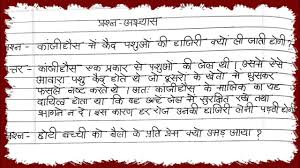 प्रश्न-अभ्यास
प्रश्न- कांजीहौस में कैद पशुओं की हाजिरी क्यों ली जाती होगी?
उत्तर- कांजीहौस एक प्रकार से पशुओं की जेल थी। उसमें ऐसे
आवारा पशु कैद होते थे जो दूसरों के खेतों में घुसकर
फसलें नष्ट करते थे। अतः कांजीहौस के मालिक का यह
दायित्व होता था कि वह उन्हें जेल में सुरक्षित रखे तथा
भागने न दे। इस कारण हर रोज उनकी हाजिरी लेनी पड़ती होगी
प्रश्न- छोटी बच्ची को बैलों के प्रति प्रेम क्यों उमड़ आया?